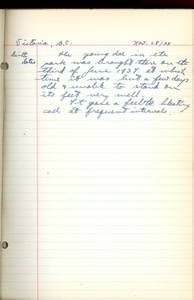 Victoria, B.C. Nov. 28/38
Birth The young doe in the
dates park was brought there on the
third of June 1937 at which
time it was but a few days
old & unable to stand on
its feet very well.
It gave a feeble bleating
call at frequent intervals.